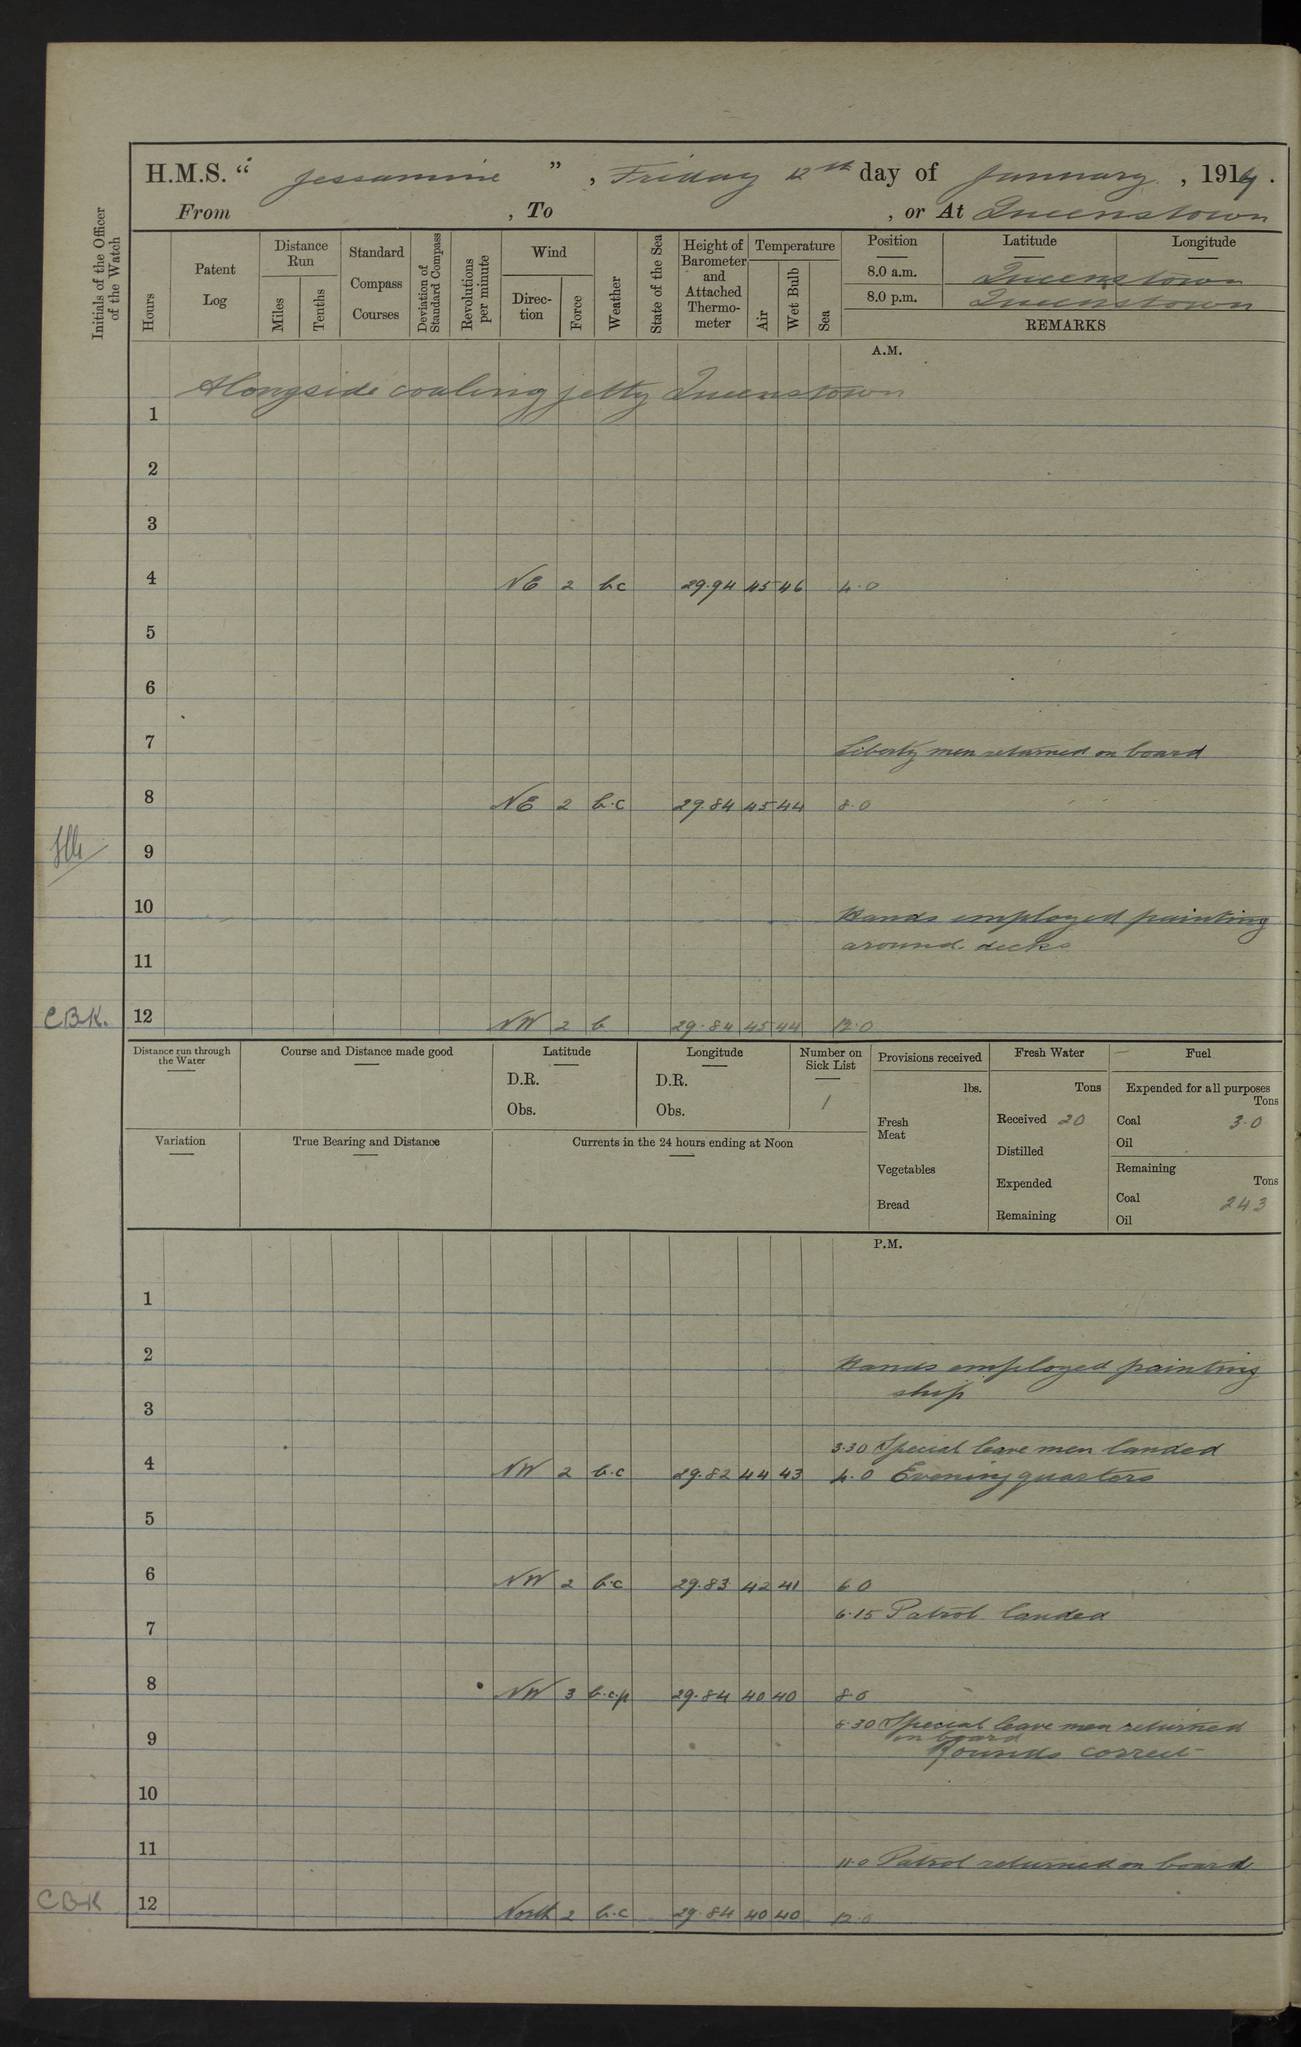 H.M.S. "Jessamine", Friday 12th day of January, 1917.
From , To , or At Queenstown
Initials of the Officer of the Watch
Hours
Patent Log
Distance Run
Miles
Tenths
Standard Compass Courses
Deviation of Standard Compass
Revolutions per minute
Wind
Direction
Force
Weather
State of the Sea
Height of Barometer and Attached Thermometer
Temperature
Air
Wet Bulb
Sea
Position Latitude Longitude
8.0 a.m. Queenstown
8.0 p.m. Queenstown
REMARKS
A.M.
Alongside coaling jetty Queenstown
1
2
3
4 NE 2 b.c 29.94 45 46 4.0
5
6
7 Liberty men returned on board
8 NE 2 b.c 29.84 45 44 8.0
9
10 Hands employed painting
around decks
11
CBK. 12 NW 2 b 29.84 45 44 12.0
Distance run through the Water
Course and Distance made good
Latitude
D.R.
Obs.
Longitude
D.R.
Obs.
Number on Sick List
1
Provisions received
lbs.
Fresh Meat
Vegetables
Bread
Fresh Water
Tons
Received 20
Distilled
Expended
Remaining
Fuel
Expended for all purposes
Tons
Coal 3.0
Oil
Remaining
Tons
Coal 243
Oil
Variation
True Bearing and Distance
Currents in the 24 hours ending at Noon
P.M.
1
2 Hands employed painting
ship
3
3.30 Special leave men landed
4 NW 2 b.c 29.82 44 43 4.0 Evening quarters
5
6 NW 2 b.c 29.83 42 41 6.0
6.15 Patrol landed
7
8 NW 3 b.c.p 29.84 40 40 8.0
8.30 Special leave men returned
on board
9 Rounds correct
10
11 11.0 Patrol returned on board
CBK 12 North 2 b.c 29.84 40 40 12.0